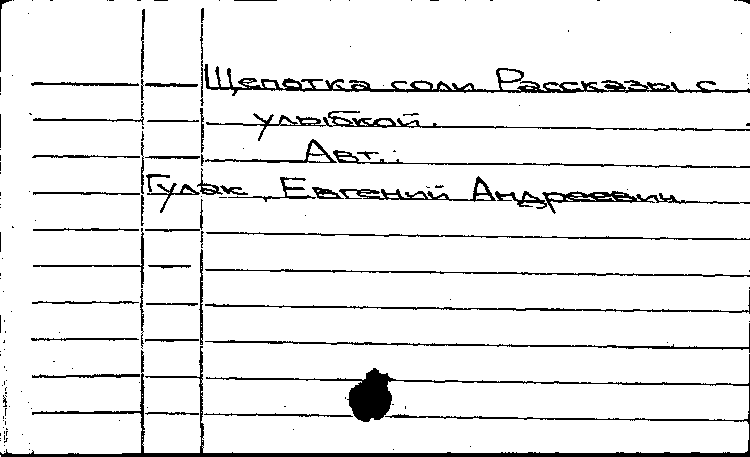 Щепотка соли Рассказы с
улыбкой.
Авт.:
Гулак, Евгений Андреевич